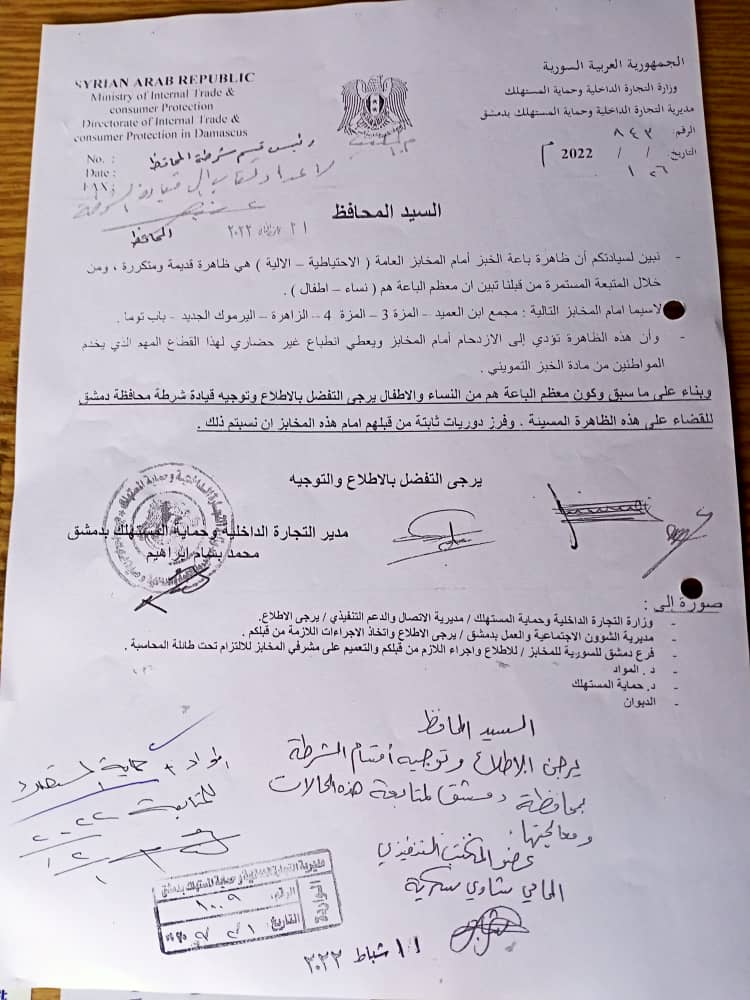 الجمهورية العربية السورية
وزارة التجارة الداخلية وحماية المستهلك
مديرية التجارة الداخلية وحماية المستهلك بدمشق
الرقم: ٨٤٣
التاريخ ٢٦ / ١ / 2022 م
SYRIAN ARAB REPUBLIC
Ministry of Internal Trade &
consumer Protection
Directorate of Internal Trade &
consumer Protection in Damascus
No. :
Date :
رئيس قسم شرطة المحافظة
السيد المحافظ
المحافظ
٢٠٢٢
- نبين لسيادتكم أن ظاهرة باعة الخبز أمام المخابز العامة ( الاحتياطية – الالية ) هي ظاهرة قديمة ومتكررة ، ومن
خلال المتبعة المستمرة من قبلنا تبين ان معظم الباعة هم ( نساء – اطفال ) .
لاسيما امام المخابز التالية : مجمع ابن العميد – المزة 3 – المزة 4 – الزاهرة – اليرموك الجديد - باب توما .
- وأن هذه الظاهرة تؤدي إلى الازدحام أمام المخابز ويعطي انطباع غير حضاري لهذا القطاع المهم الذي يخدم
المواطنين من مادة الخبز التمويني .
وبناء على ما سبق وكون معظم الباعة هم من النساء والاطفال يرجى التفضل بالاطلاع وتوجيه قيادة شرطة محافظة دمشق
للقضاء على هذه الظاهرة المسيئة . وفرز دوريات ثابتة من قبلهم امام هذه المخابز ان نسبتم ذلك .
يرجى التفضل بالاطلاع والتوجيه
مدير التجارة الداخلية وحماية المستهلك بدمشق
محمد بسام ابراهيم
صورة إلى :
- وزارة التجارة الداخلية وحماية المستهلك / مديرية الاتصال والدعم التنفيذي / يرجى الاطلاع.
- مديرية الشوون الاجتماعية والعمل بدمشق / يرجى الاطلاع واتخاذ الاجراءات اللازمة من قبلكم .
- فرع دمشق للسورية للمخابز / للاطلاع واجراء اللازم من قبلكم والتعميم على مشرفي المخابز للالتزام تحت طائلة المحاسبة .
- د . المواد
- د. حماية المستهلك
- الديوان
السيد المحافظ
يرجى الاطلاع وتوجيه أقسام الشرطة
بمحافظة دمشق لمتابعة هذه الحالات
ومعالجتها.
عضو المكتب التنفيذي
المحامي
١١ شباط ٢٠٢٢
المواد + حماية
للمتابعة
مديرية التجارة الداخلية وحماية المستهلك بدمشق
الواردة
الرقم: ١٠٠٩
التاريخ